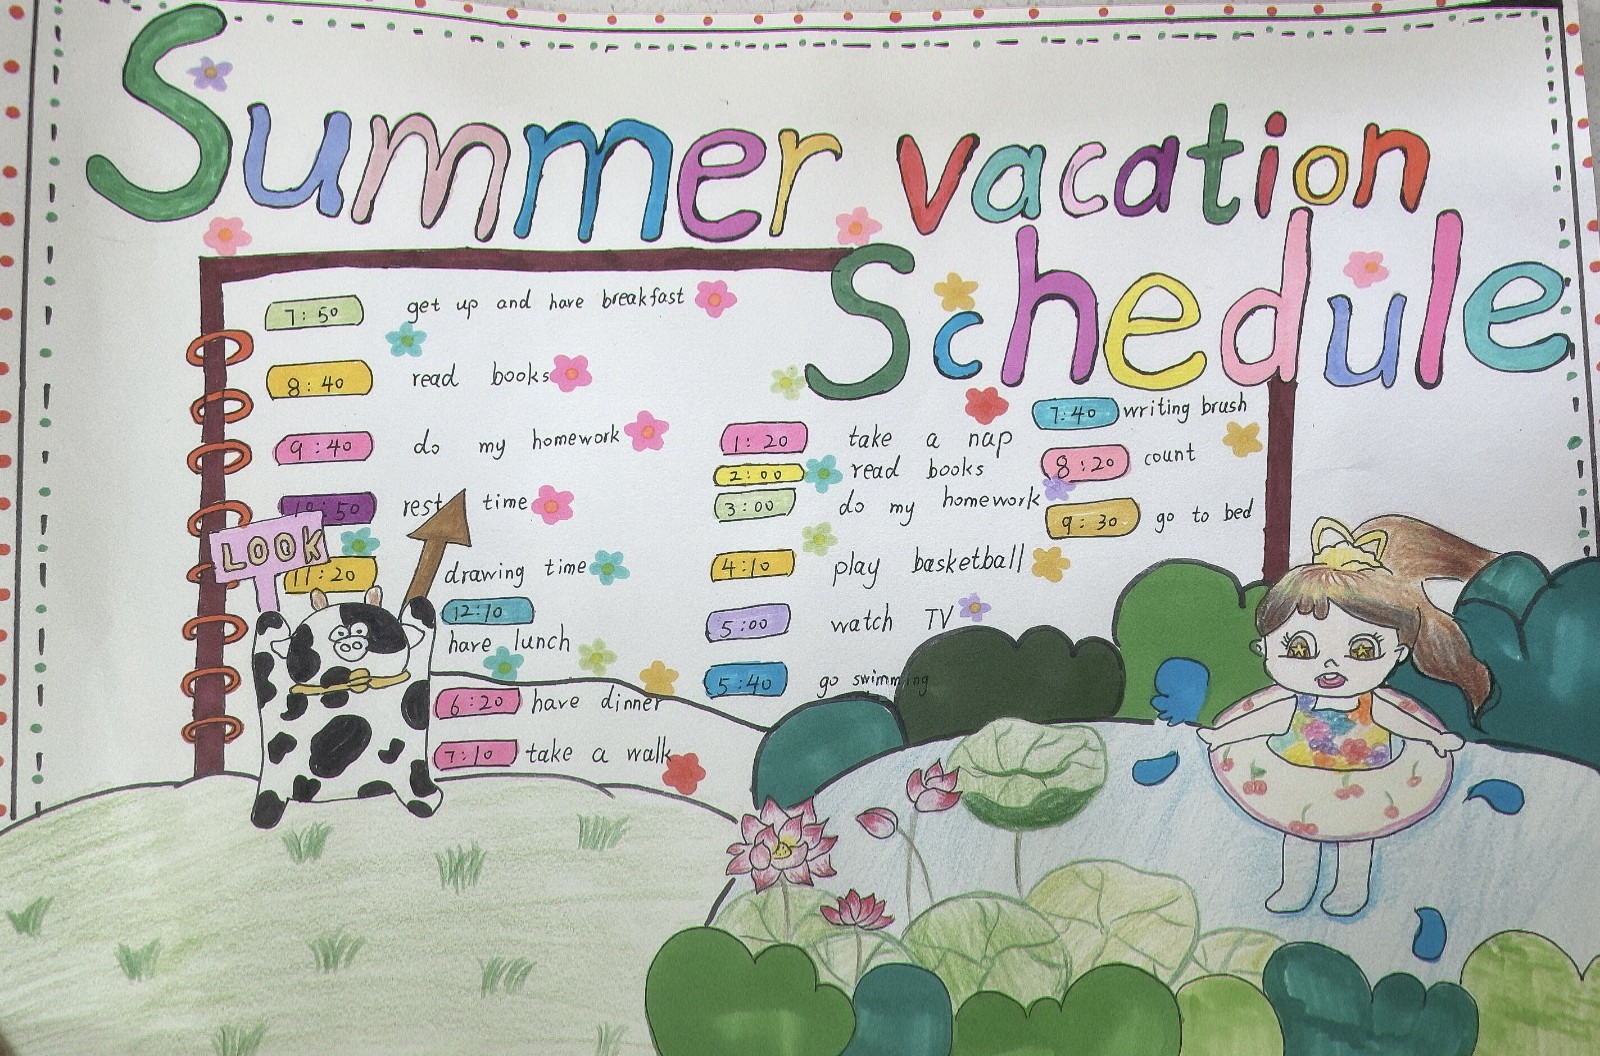 Summer vacation
Schedule
7:50 get up and have breakfast
8:40 read books
9:40 do my homework
10:50 rest time
LOOK
11:20 drawing time
12:10
have lunch
1:20 take a nap
2:00 read books
3:00 do my homework
4:10 play basketball
5:00 watch TV
5:40 go swimming
6:20 have dinner
7:10 take a walk
7:40 writing brush
8:20 count
9:30 go to bed